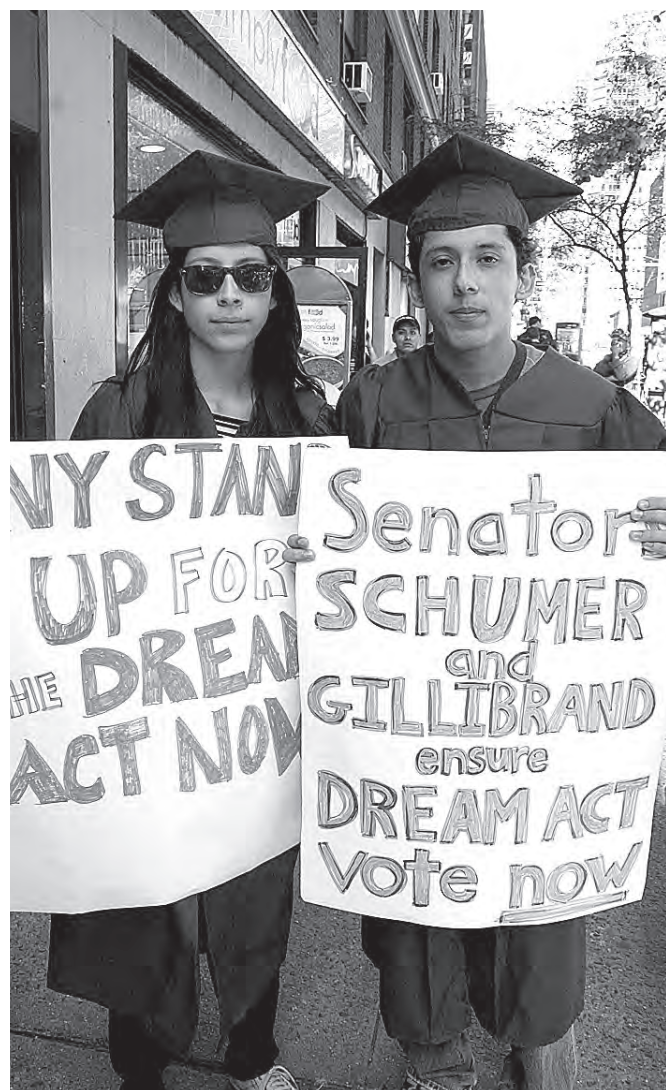 NY STAN
UP FOR
HE DREAM
ACT NOW
Senator
SCHUMER
and
GILLIBRAND
ensure
DREAM ACT
Vote now
$3.99